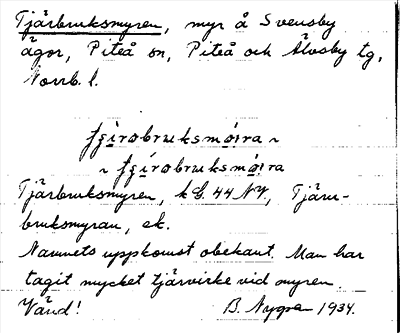 Tjärbruksmyren, myr å Svensby
ägor, Piteå sn, Piteå och Älvsby tg,
Norrb. l.
Tjärbruksmyren, k G. 44 NV, Tjäru-
bruksmyran, ek.
Namnets uppkomst obekant. Man har
tagit mycket tjärvirke vid myren.
Vänd! B. Nygren 1934.